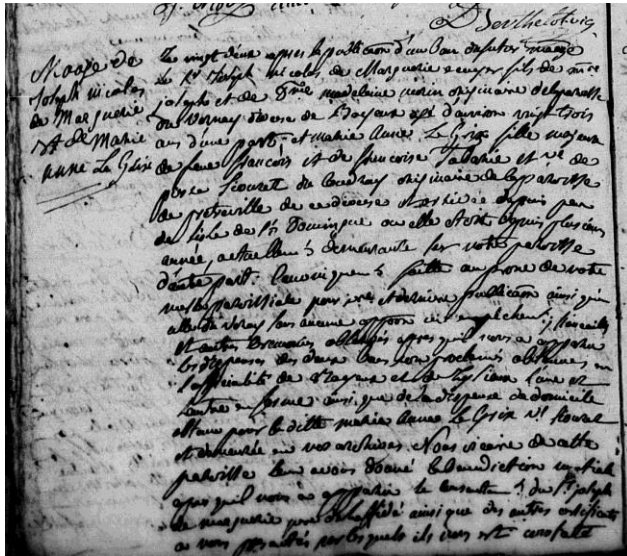 D Berthelot vic
Mariage de
Joseph nicolas
de Marguerie
et de Marie
Anne Le Grix
Le vingt deux apres la publication d'un ban du futur mariage
Le Sr Joseph nicolas de Marguerie ecuyer fils de mre
joseph et de Dlle madelaine morin originaire de la paroisse
du Vernay diocese de Bayeux agé d'environ vingt trois
ans d'une part, et marie Anne Le Grix fille majeure
de feu francois et de francoise et ve de
Liouret du Coudray originaire de la paroisse
de pretreville de ce diocese et arrivée depuis peu
de l'isle de St Domingue ou elle etoit depuis plusieurs
année, actuellemt demeurante sur notre paroisse
d'autre part. Canoniquemt faitte au prone de notre
messe paroissiale pour 1ere et derniere publication ainsi qu'il
sans aucune opposon ni empechement,
et autres observées apres qu'il nous a apparu
des dispenses des deux bans non proclamés obtenues en
l'officialité de Bayeux et de Lysieux l'une et
l'autre en forme ainsi que de la dispense de domicile
obtenue pour la ditte marie Anne Le Grix Ve Liouret
et demeurée en nos archives. Nous vicaire de cette
paroisse leur avons donné la benediction nuptiale
apres qu'il nous a apparu le consentemt du Sr joseph
de marguerie pere ainsi que des autres certificats
a nous presentés par lesquels il nous est constaté